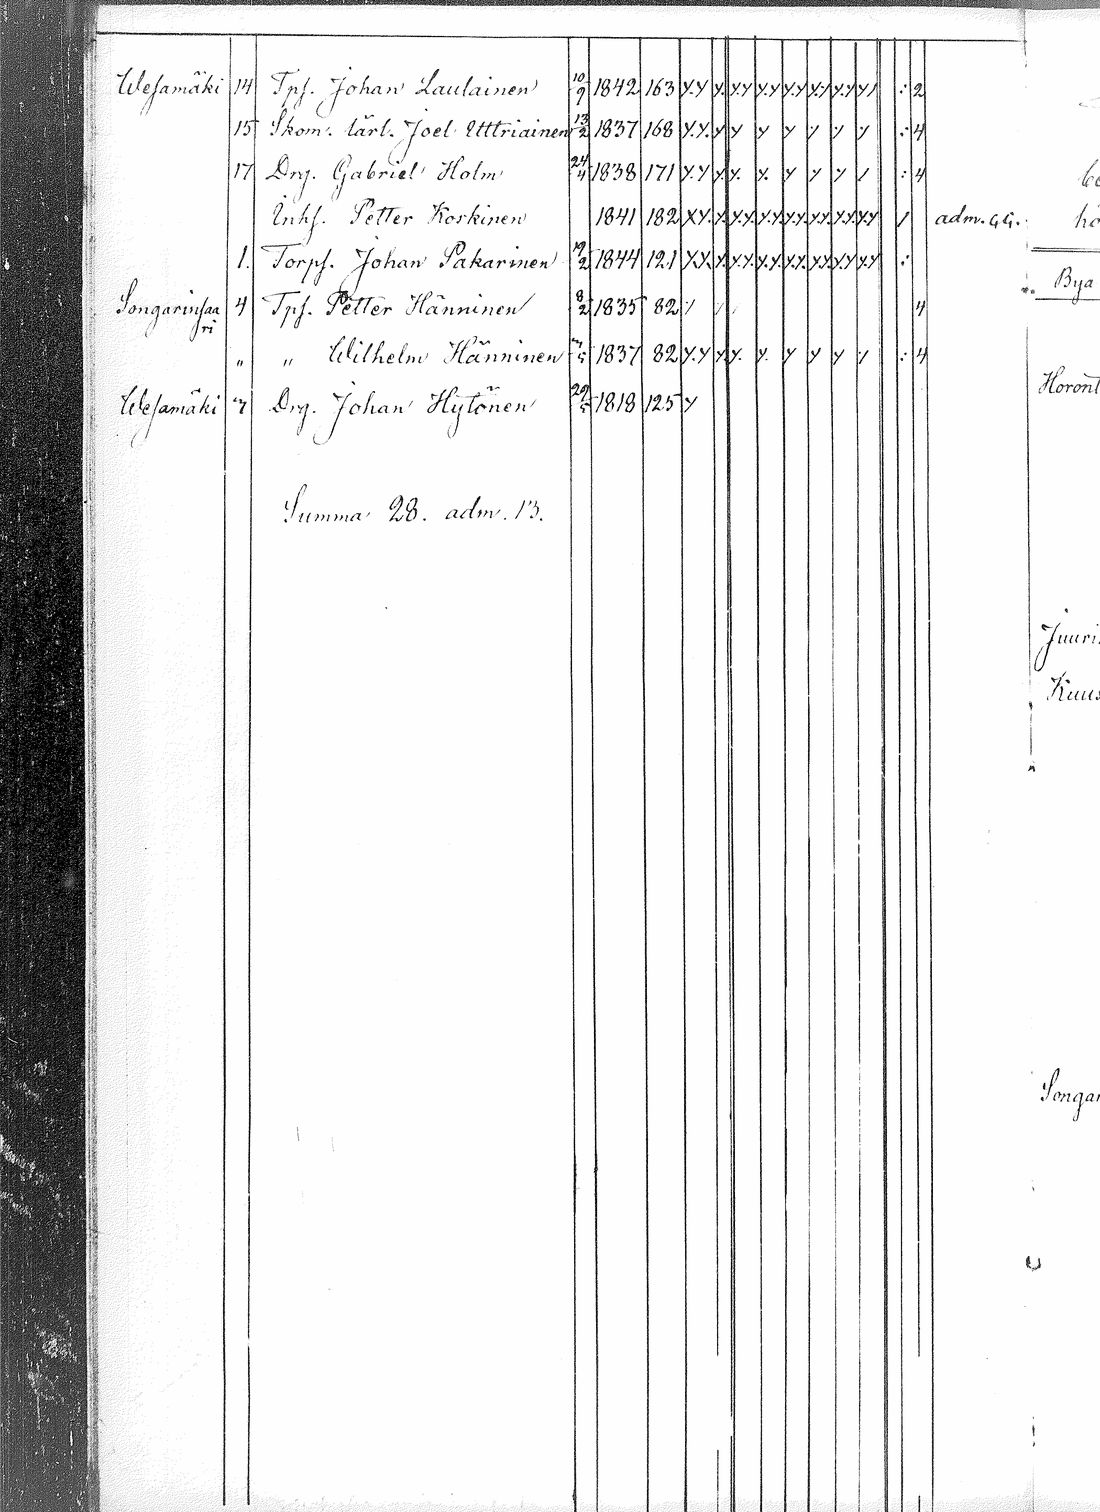 Wesamäki 14 Tps. Johan Laulainen 10/9 1842 163 XX X XX XX XX XX XX X/ : 2
15 Skom. lärl. Joel Uttriainen 13/2 1837 168 XX X X X X X X X : 4
17 Drg. Gabriel Holm 24/4 1838 171 XX X X. X X X X / : 4
Inhs. Petter Koskinen 1841 182 XX X XX XX XX XX XX XX / adm. GG.
1. Torps. Johan Pakarinen 19/2 1844 121 XX X XX XX XX XX XX XX :
Songarinsaari 4 Tps. Petter Hänninen 8/2 1835 82 / / / 4
" " Wilhelm Hänninen 7/5 1837 82 XX X X. X X X X / : 4
Wesamäki 7 Drg. Johan Hytönen 29/5 1818 125 X
Summa 28. adm. 13.
Bya
Horont
Juuri
Kuus
Songar